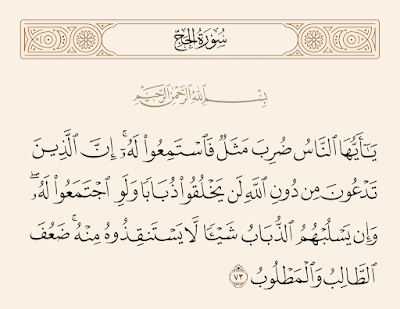 سُورَةُ الحَجِّ
بِسْمِ اللَّهِ الرَّحْمَٰنِ الرَّحِيمِ
يَٰٓأَيُّهَا ٱلنَّاسُ ضُرِبَ مَثَلٌ فَٱسْتَمِعُوا۟ لَهُۥٓ ۚ إِنَّ ٱلَّذِينَ
تَدْعُونَ مِن دُونِ ٱللَّهِ لَن يَخْلُقُوا۟ ذُبَابًا وَلَوِ ٱجْتَمَعُوا۟ لَهُۥ ۖ
وَإِن يَسْلُبْهُمُ ٱلذُّبَابُ شَيْـًٔا لَّا يَسْتَنقِذُوهُ مِنْهُ ۚ ضَعُفَ
ٱلطَّالِبُ وَٱلْمَطْلُوبُ ٧٣